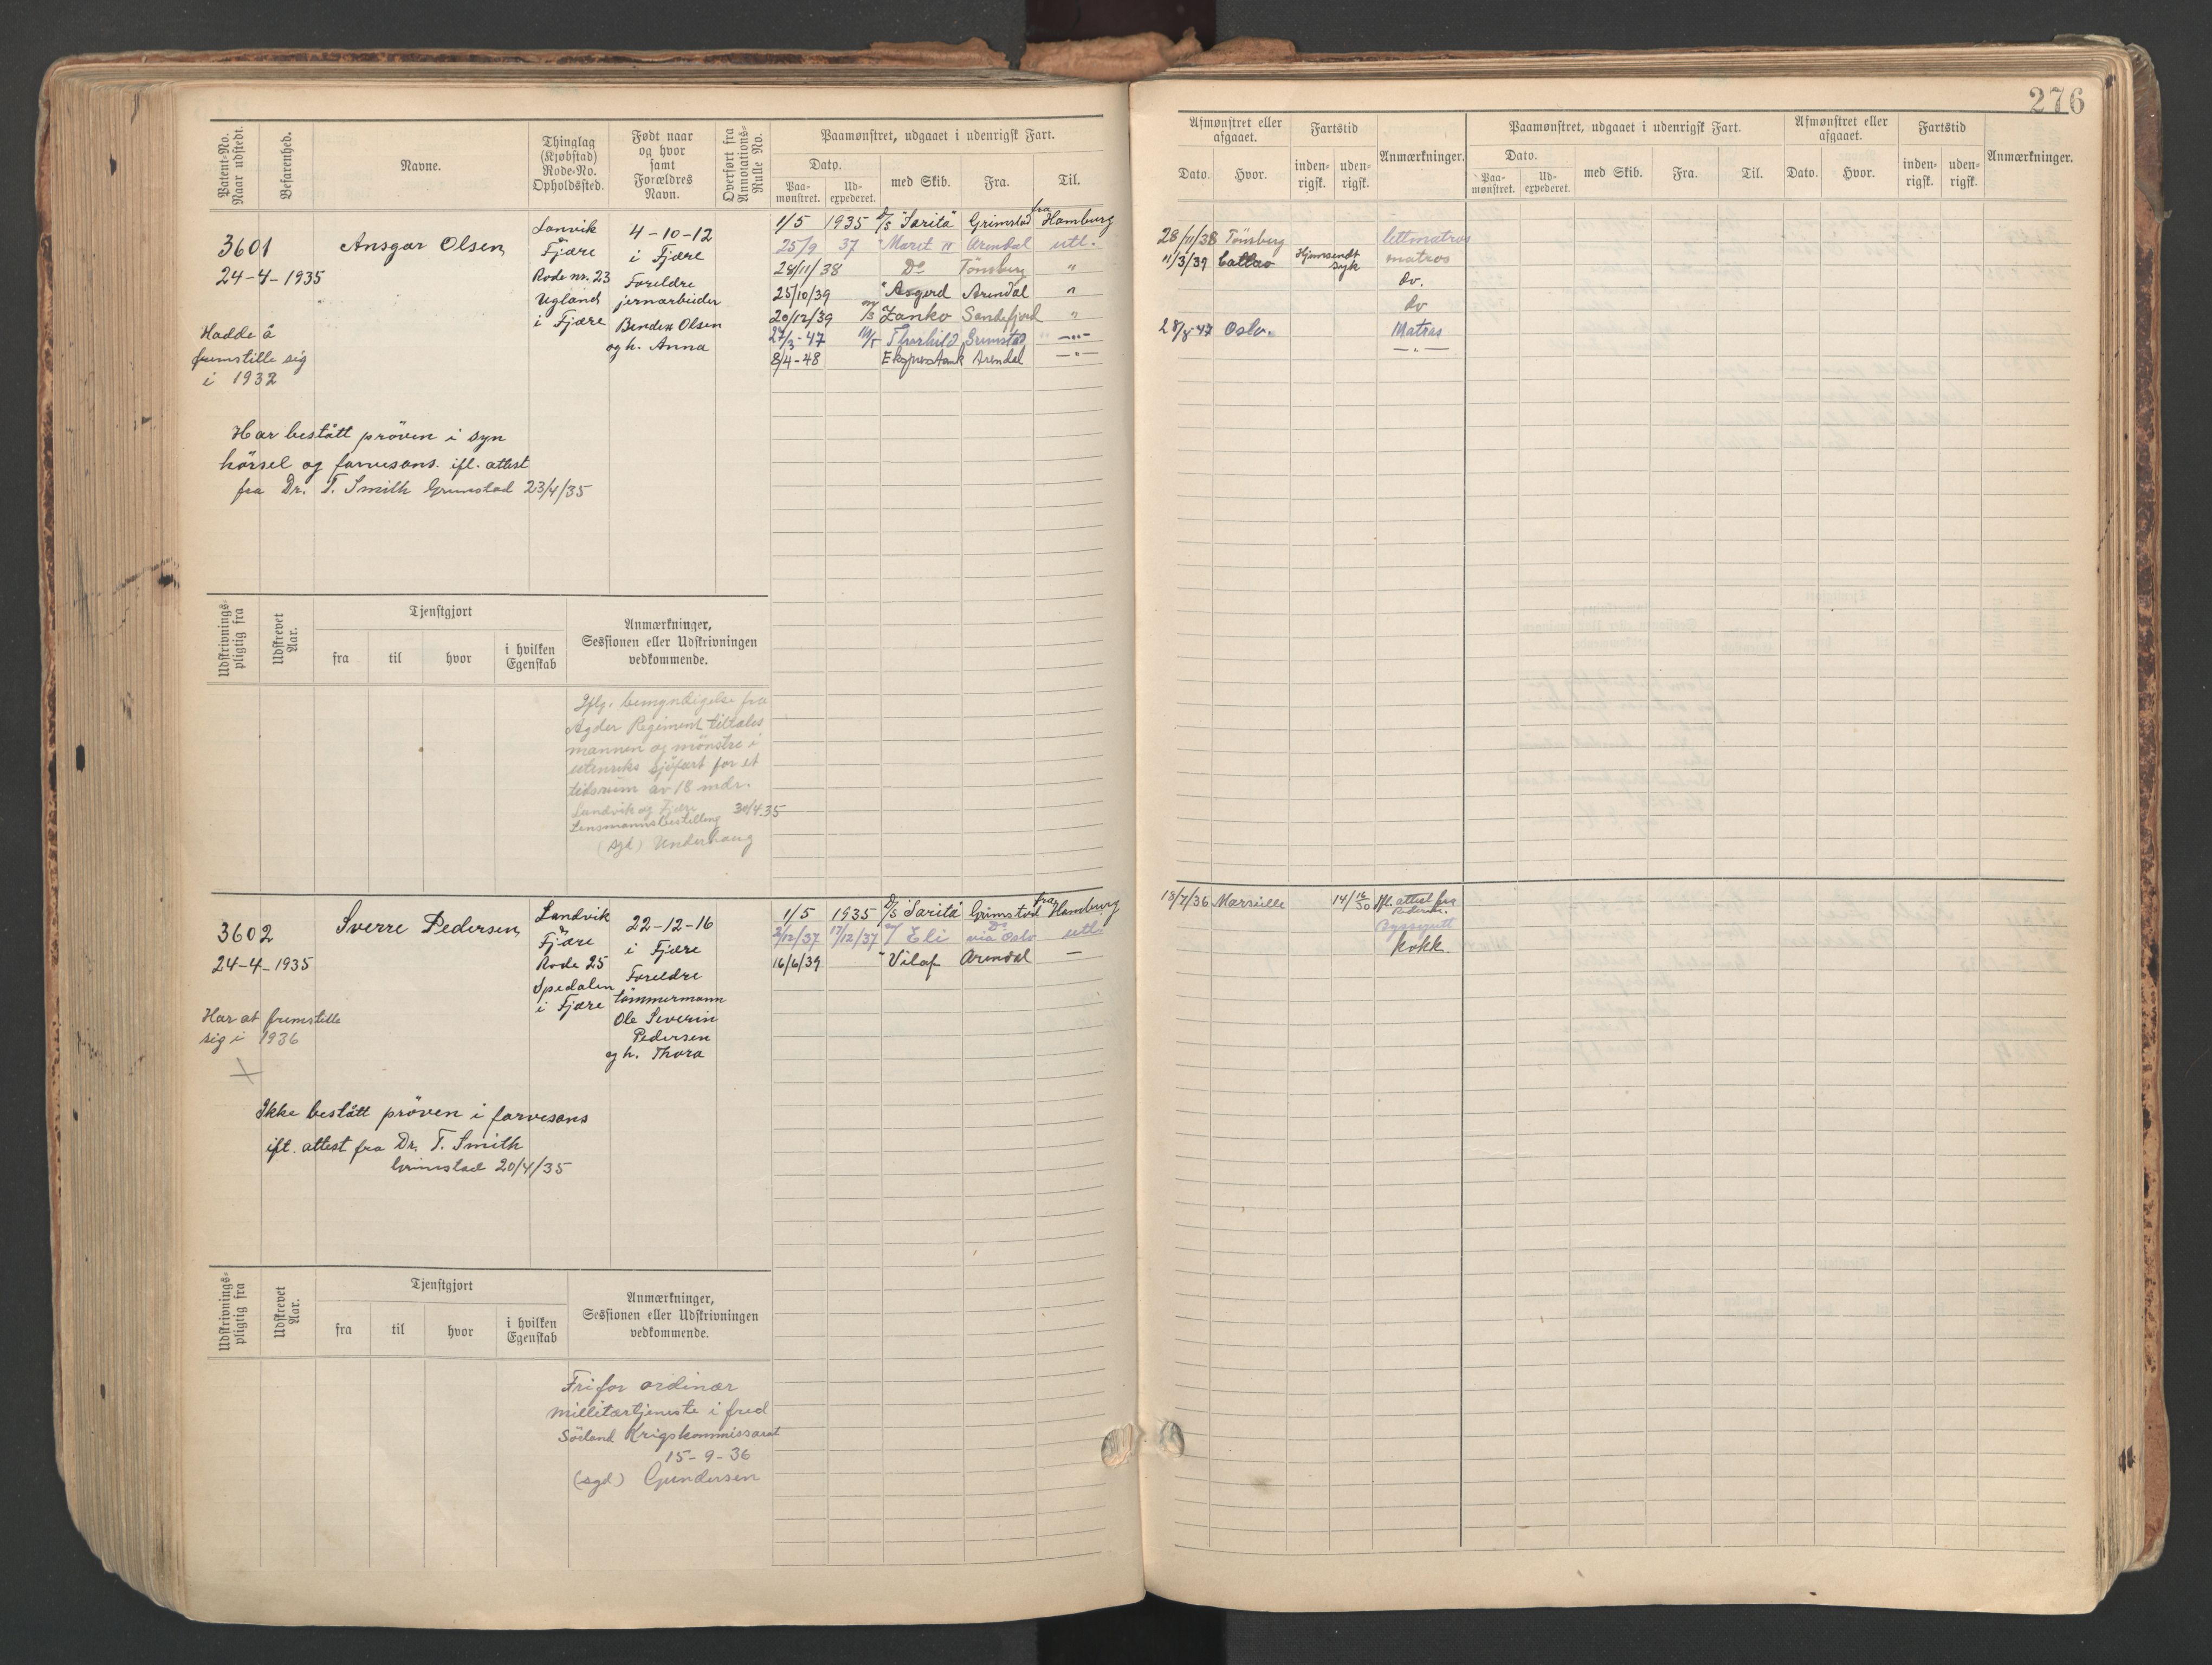 276
Patent-No. Naar udstedt.
Befarenhed.
Navne.
Thinglag (Kjøbstad) Rode-No. Opholdssted.
Født naar og hvor samt Forældres Navn.
Overført fra Annotations-Rulle No.
Paamønstret, udgaaet i udenrigsk Fart.
Dato.
Paa-mønstret.
Ud-expederet.
med Skib.
Fra.
Til.
Afmønstret eller afgaaet.
Dato.
Hvor.
Fartstid
inden-rigsk.
uden-rigsk.
Anmærkninger.
Paamønstret, udgaaet i udenrigsk Fart.
Dato.
Paa-mønstret.
Ud-expederet.
med Skib.
Fra.
Til.
Afmønstret eller afgaaet.
Dato.
Hvor.
Fartstid
inden-rigsk.
uden-rigsk.
Anmærkninger.
3601
24-4-1935
Hadde å
fremstille sig
i 1932
Ansgar Olsen
Lanvik
&
Fjære
Rode nr. 23
Ugland
i Fjære
4-10-12
i Fjære
Foreldre
jernarbeider
Bendix Olsen
og h. Anna
1/5 1935 D/S "Sarita" Grimstad fra Hamburg
25/9 37 "Maret" Arendal utl.
28/11/38 Do Tönsberg "
25/10/39 "Asgerd Arendal "
20/12/39 M/S "Zanko Sandefjord "
27/3-47 M/T Thorhild Grimstad -"-
8/4-48 Ekspresstank Arendal -"-
28/11/38 Tönsberg lettmatros
11/3/39 Callao Hjemsendt syk matros
do.
do
28/8 47 Oslo. Matros
-"-
Har bestått pröven i syn
hörsel og farvesans. ifl. attest
fra Dr. T. Smith Grimstad 23/4/35
Udskrivnings-pligtig fra
Udskrevet Aar.
Tjenstgjort
fra
til
hvor
i hvilken Egenskab
Anmærkninger, Sessionen eller Udskrivningen vedkommende.
Iflg. bemyndigelse fra
Agder Regiment tillates
mannen og mönstre i
utenriks sjöfart for et
tidsrum av 18 mdr.
Landvik og Fjære
Lensmannsbestilling 30/4-35
(sgd) Underhaug
3602
24-4-1935
Har at fremstille
sig i 1936
Sverre Pedersen
Landvik
&
Fjære
Rode 25
Spedalen
i Fjære
22-12-16
i Fjære
Foreldre
tömmermann
Ole Severin
Pedersen
og h. Thora
1/5 1935 D/S "Sarita" Grimstad fra Hamburg
2/12/37 17/12/37 Eli Do via Oslo utl.
16/6/39 "Vilaf Arendal —
13/7/36 Marseille 14/16/30 Ifl. attest fra Rederiet.
Byssgutt
kokk
Ikke bestått pröven i farvesans
ifl. attest fra Dr. T. Smith
Grimstad 20/4/35
Udskrivnings-pligtig fra
Udskrevet Aar.
Tjenstgjort
fra
til
hvor
i hvilken Egenskab
Anmærkninger, Sessionen eller Udskrivningen vedkommende.
Fri for ordinær
millitærtjeneste i fred
Sörland Krigskommissariat
15-9-36
(sgd) Gundersen